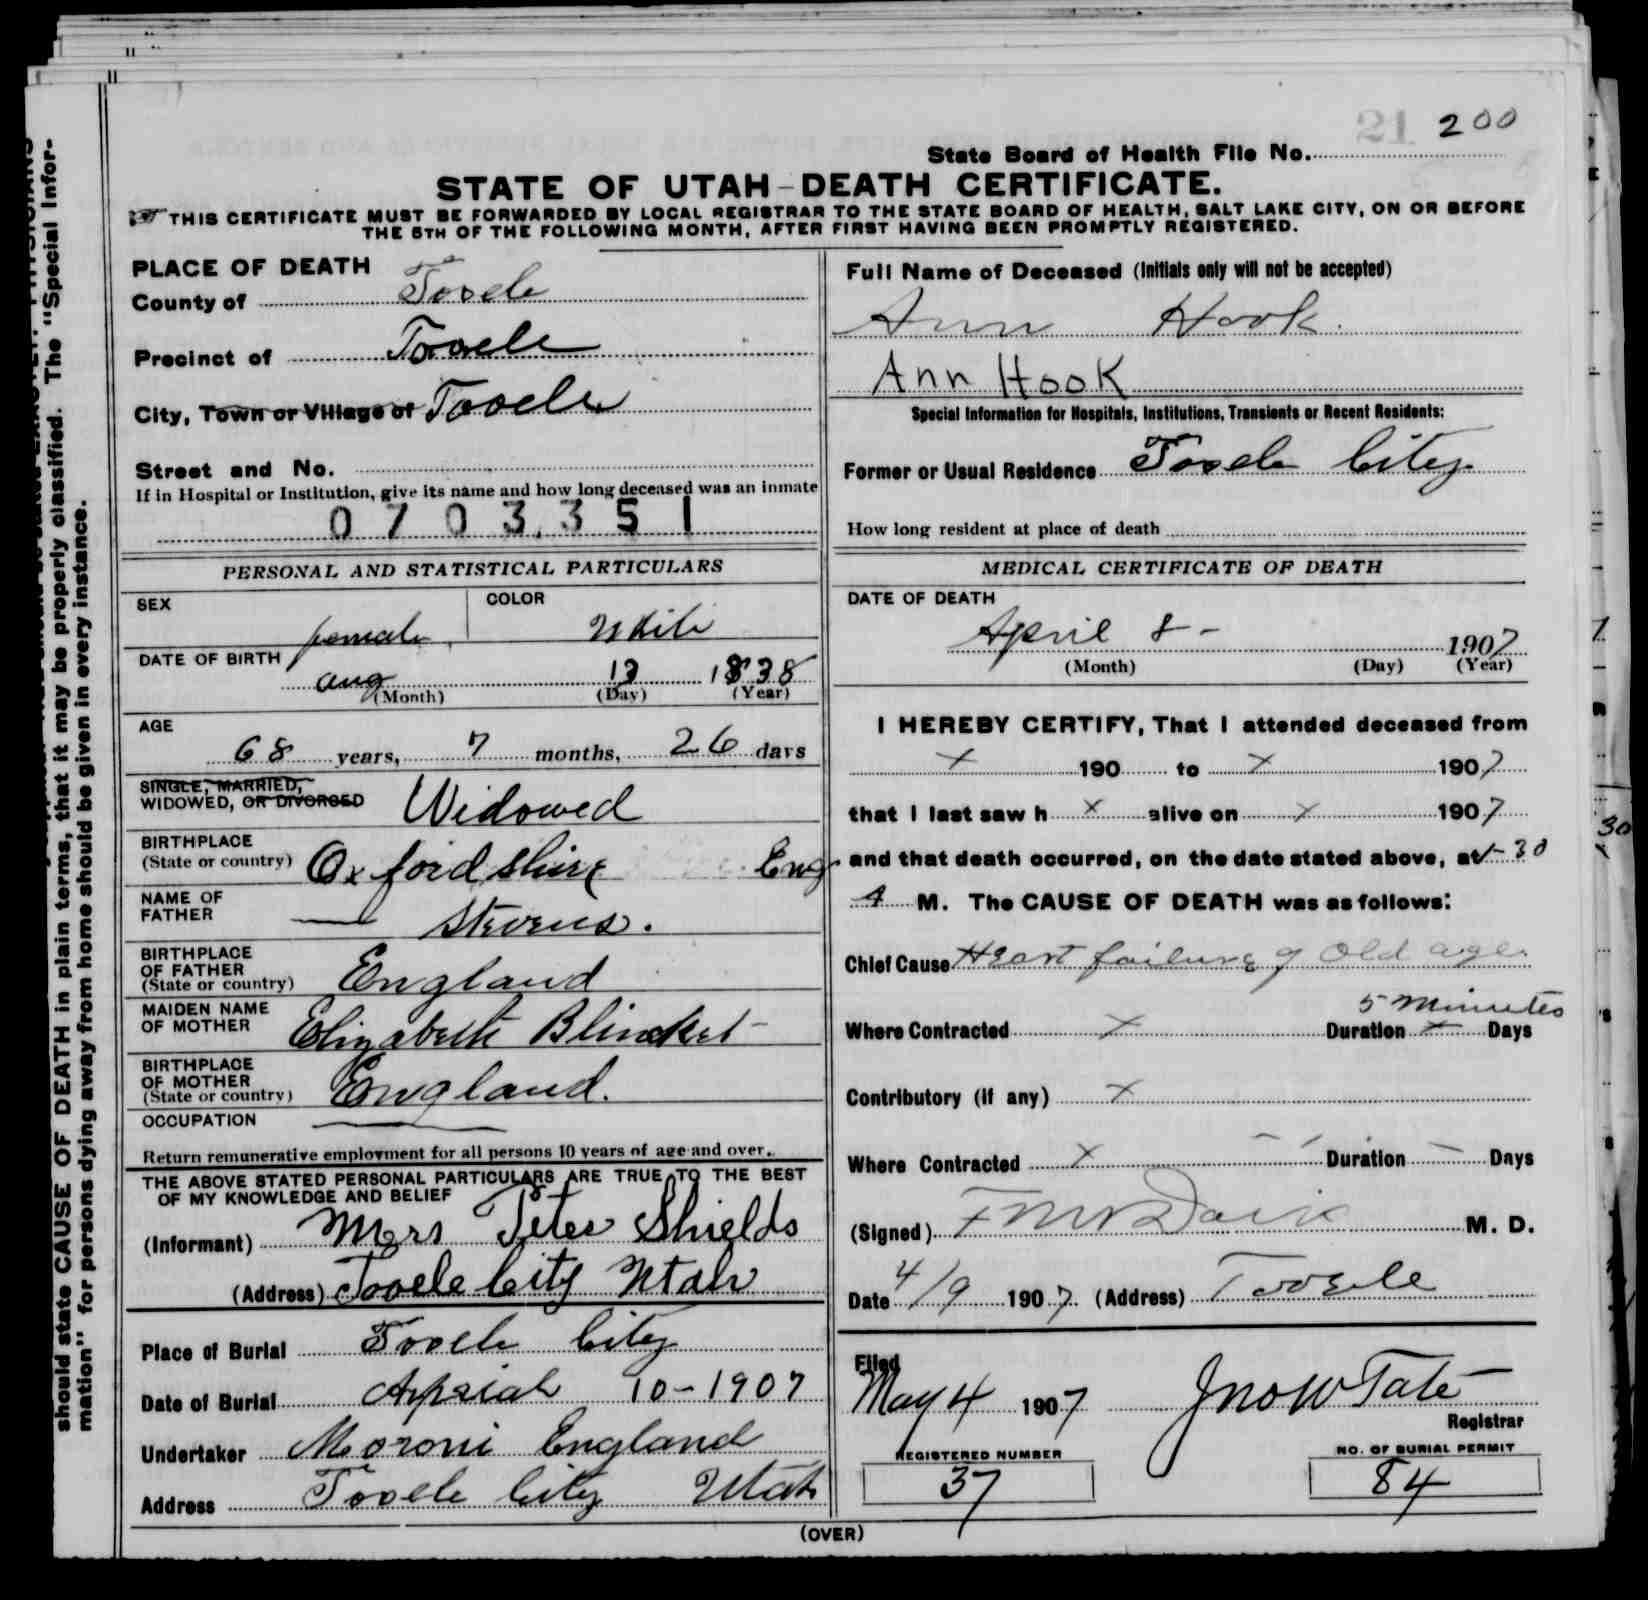 21 200
State Board of Health File No.
STATE OF UTAH-DEATH CERTIFICATE.
THIS CERTIFICATE MUST BE FORWARDED BY LOCAL REGISTRAR TO THE STATE BOARD OF HEALTH, SALT LAKE CITY, ON OR BEFORE
THE 5TH OF THE FOLLOWING MONTH, AFTER FIRST HAVING BEEN PROMPTLY REGISTERED.
should state CAUSE OF DEATH in plain terms, that it may be properly classified. The "Special Infor-
mation" for persons dying away from home should be given in every instance.
PLACE OF DEATH
County of Tooele
Precinct of Tooele
City, Town or Village of Tooele
Street and No.
If in Hospital or Institution, give its name and how long deceased was an inmate
0703351
PERSONAL AND STATISTICAL PARTICULARS
SEX female COLOR White
DATE OF BIRTH aug 13 1838
(Month) (Day) (Year)
AGE
68 years, 7 months, 26 days
SINGLE, MARRIED,
WIDOWED, OR DIVORCED Widowed
BIRTHPLACE
(State or country) Oxfordshire Eng
NAME OF
FATHER — Stevens.
BIRTHPLACE
OF FATHER
(State or country) England
MAIDEN NAME
OF MOTHER Elizabeth
BIRTHPLACE
OF MOTHER
(State or country) England.
OCCUPATION —
Return remunerative employment for all persons 10 years of age and over.
THE ABOVE STATED PERSONAL PARTICULARS ARE TRUE TO THE BEST
OF MY KNOWLEDGE AND BELIEF
(Informant) Mers Peter Shields
(Address) Tooele City Utah
Place of Burial Tooele City
Date of Burial 10-1907
Undertaker Moroni England
Address Tooele City Utah
Full Name of Deceased (Initials only will not be accepted)
Ann Hook.
Ann Hook
Special Information for Hospitals, Institutions, Transients or Recent Residents:
Former or Usual Residence Tooele City
How long resident at place of death
MEDICAL CERTIFICATE OF DEATH
DATE OF DEATH
April 8 - 1907
(Month) (Day) (Year)
I HEREBY CERTIFY, That I attended deceased from
x 190 to x 1907
that I last saw h x alive on x 1907
and that death occurred, on the date stated above, at 1-30
A M. The CAUSE OF DEATH was as follows:
Chief Cause Heart failure of Old age.
5 Minutes
Where Contracted x Duration x Days
Contributory (if any) x
Where Contracted x Duration — Days
(Signed) M. D.
Date 4/9 1907. (Address) Tooele
Filed
May 4 1907 Jno W Tate
Registrar
REGISTERED NUMBER
37
NO. OF BURIAL PERMIT
84
(OVER)